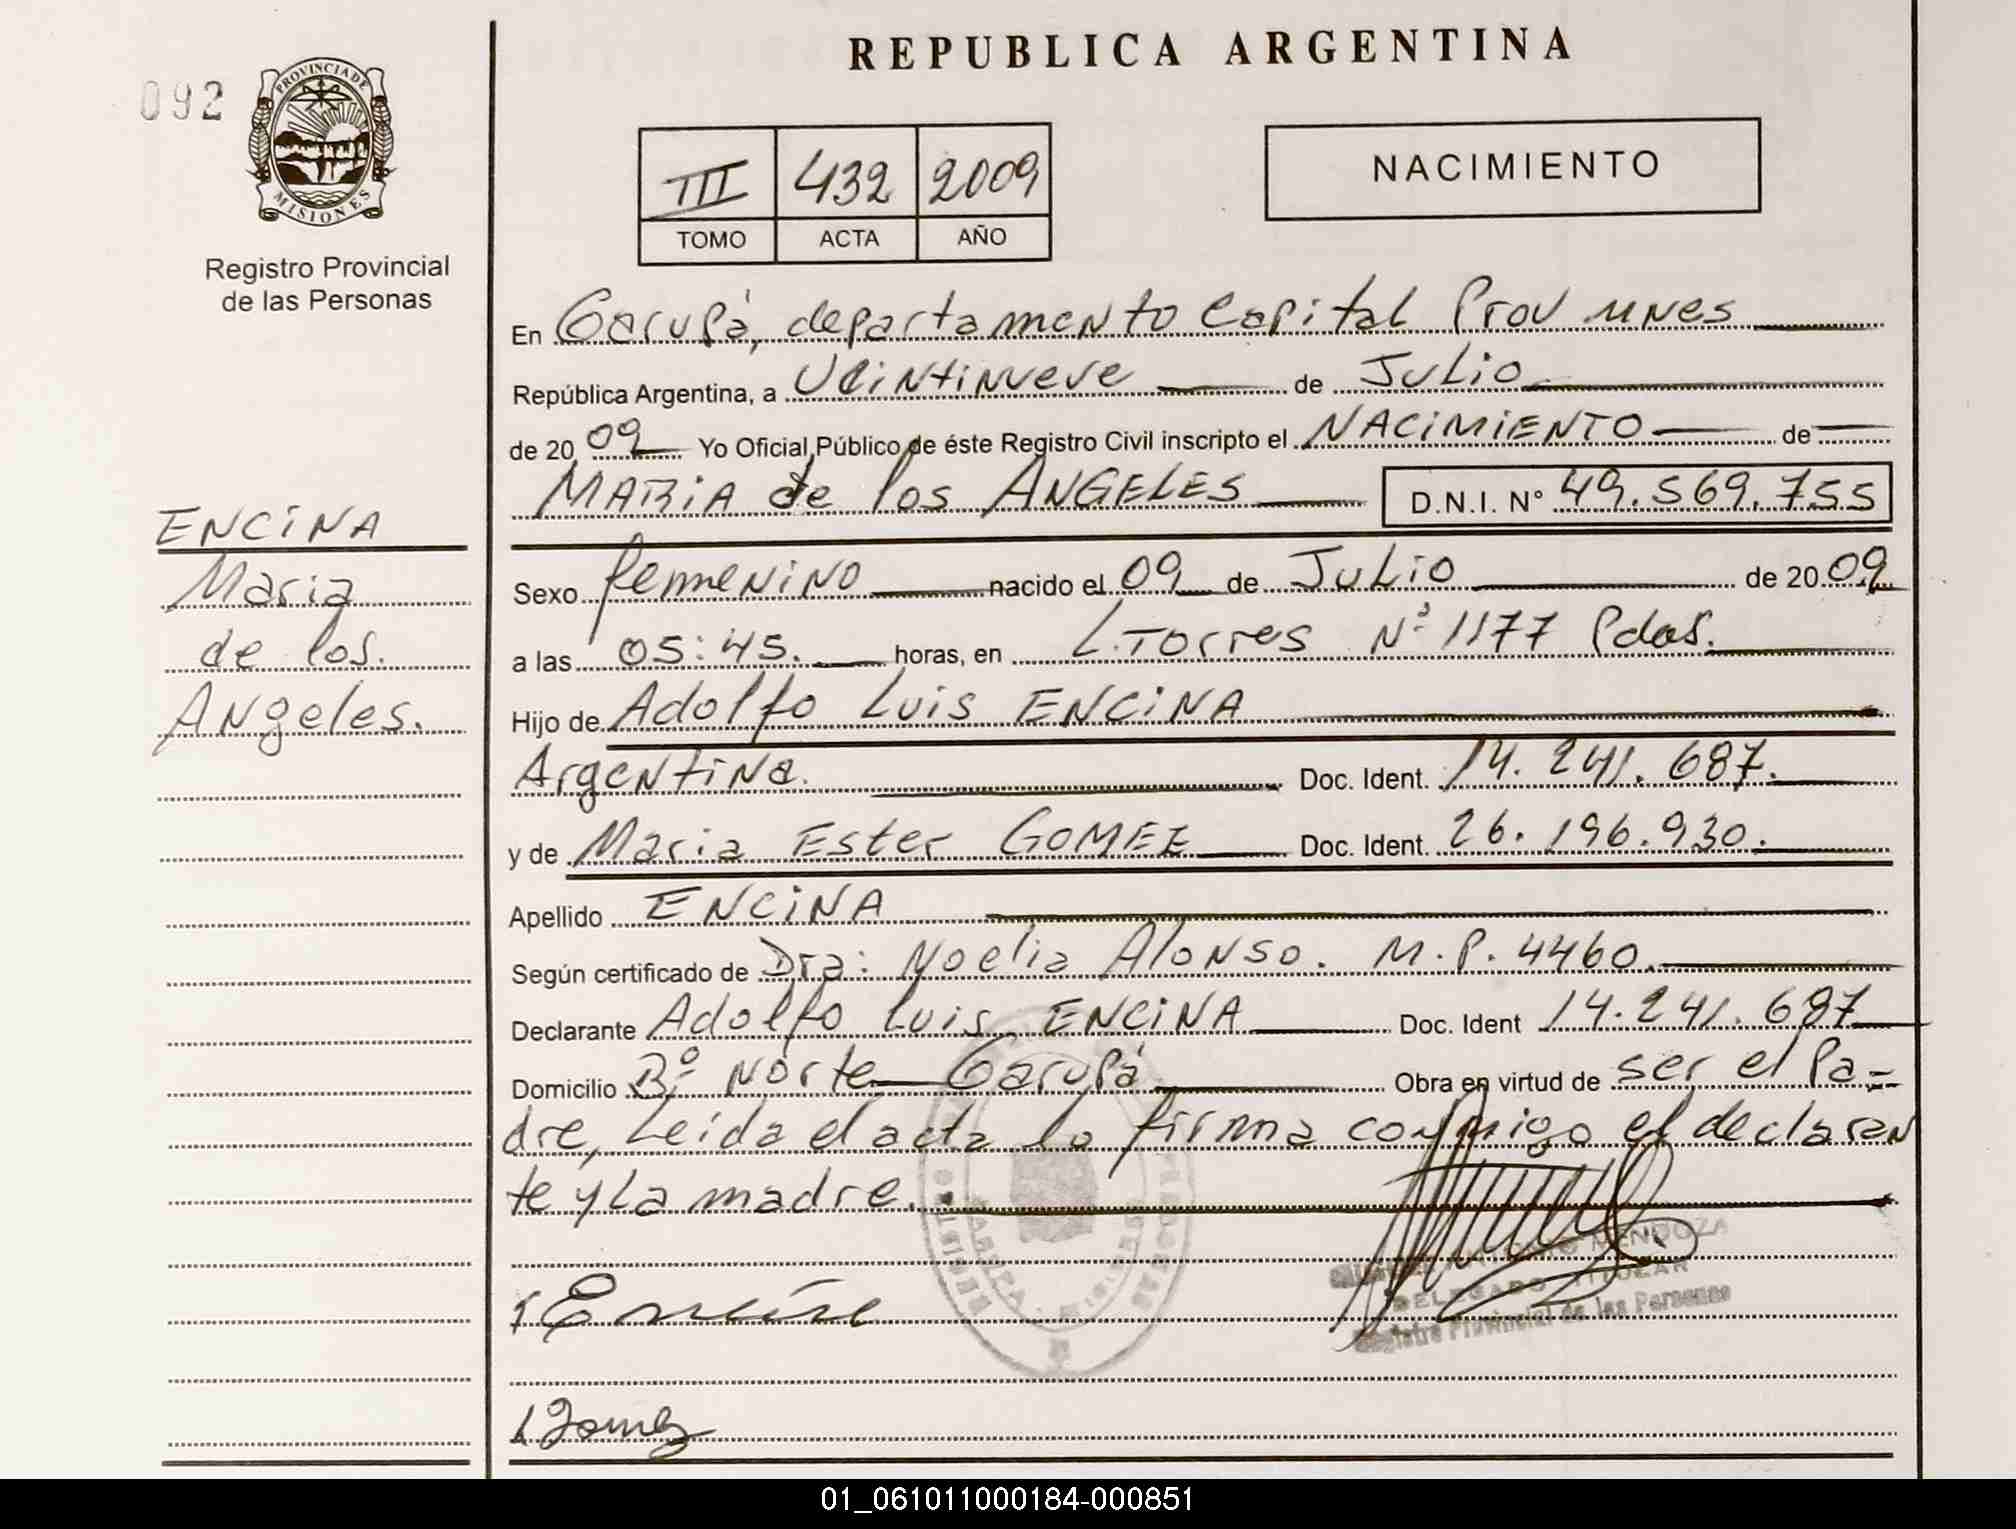 REPUBLICA ARGENTINA
092
PROVINCIA DE
MISIONES
Registro Provincial
de las Personas
III 432 2009
TOMO ACTA AÑO
NACIMIENTO
En Garupá, departamento Capital Prov mnes
República Argentina, a Veintinueve de Julio
de 2009 Yo Oficial Público de éste Registro Civil inscripto el NACIMIENTO de
MARIA de los ANGELES D.N.I. N° 49.569.755
ENCINA
Maria
de los.
Angeles.
Sexo femenino nacido el 09 de Julio de 2009
a las 05:45. horas, en L. Torres Nº 1177 Pdas.
Hijo de Adolfo Luis ENCINA
Argentina. Doc. Ident. 14.241.687.
y de Maria Ester GOMEZ Doc. Ident. 26.196.930.
Apellido ENCINA
Según certificado de Dra: Noelia Alonso. M.P. 4460.
Declarante Adolfo Luis ENCINA Doc. Ident 14.241.687
Domicilio Bº Norte Garupá Obra en virtud de ser el Pa-
dre, Leída el acta la firma conmigo el declaran
te y La madre.
ANTONIO MENDOZA
DELEGADO TITULAR
Registro Provincial de las Personas
Encina
Gomez
01_061011000184-000851